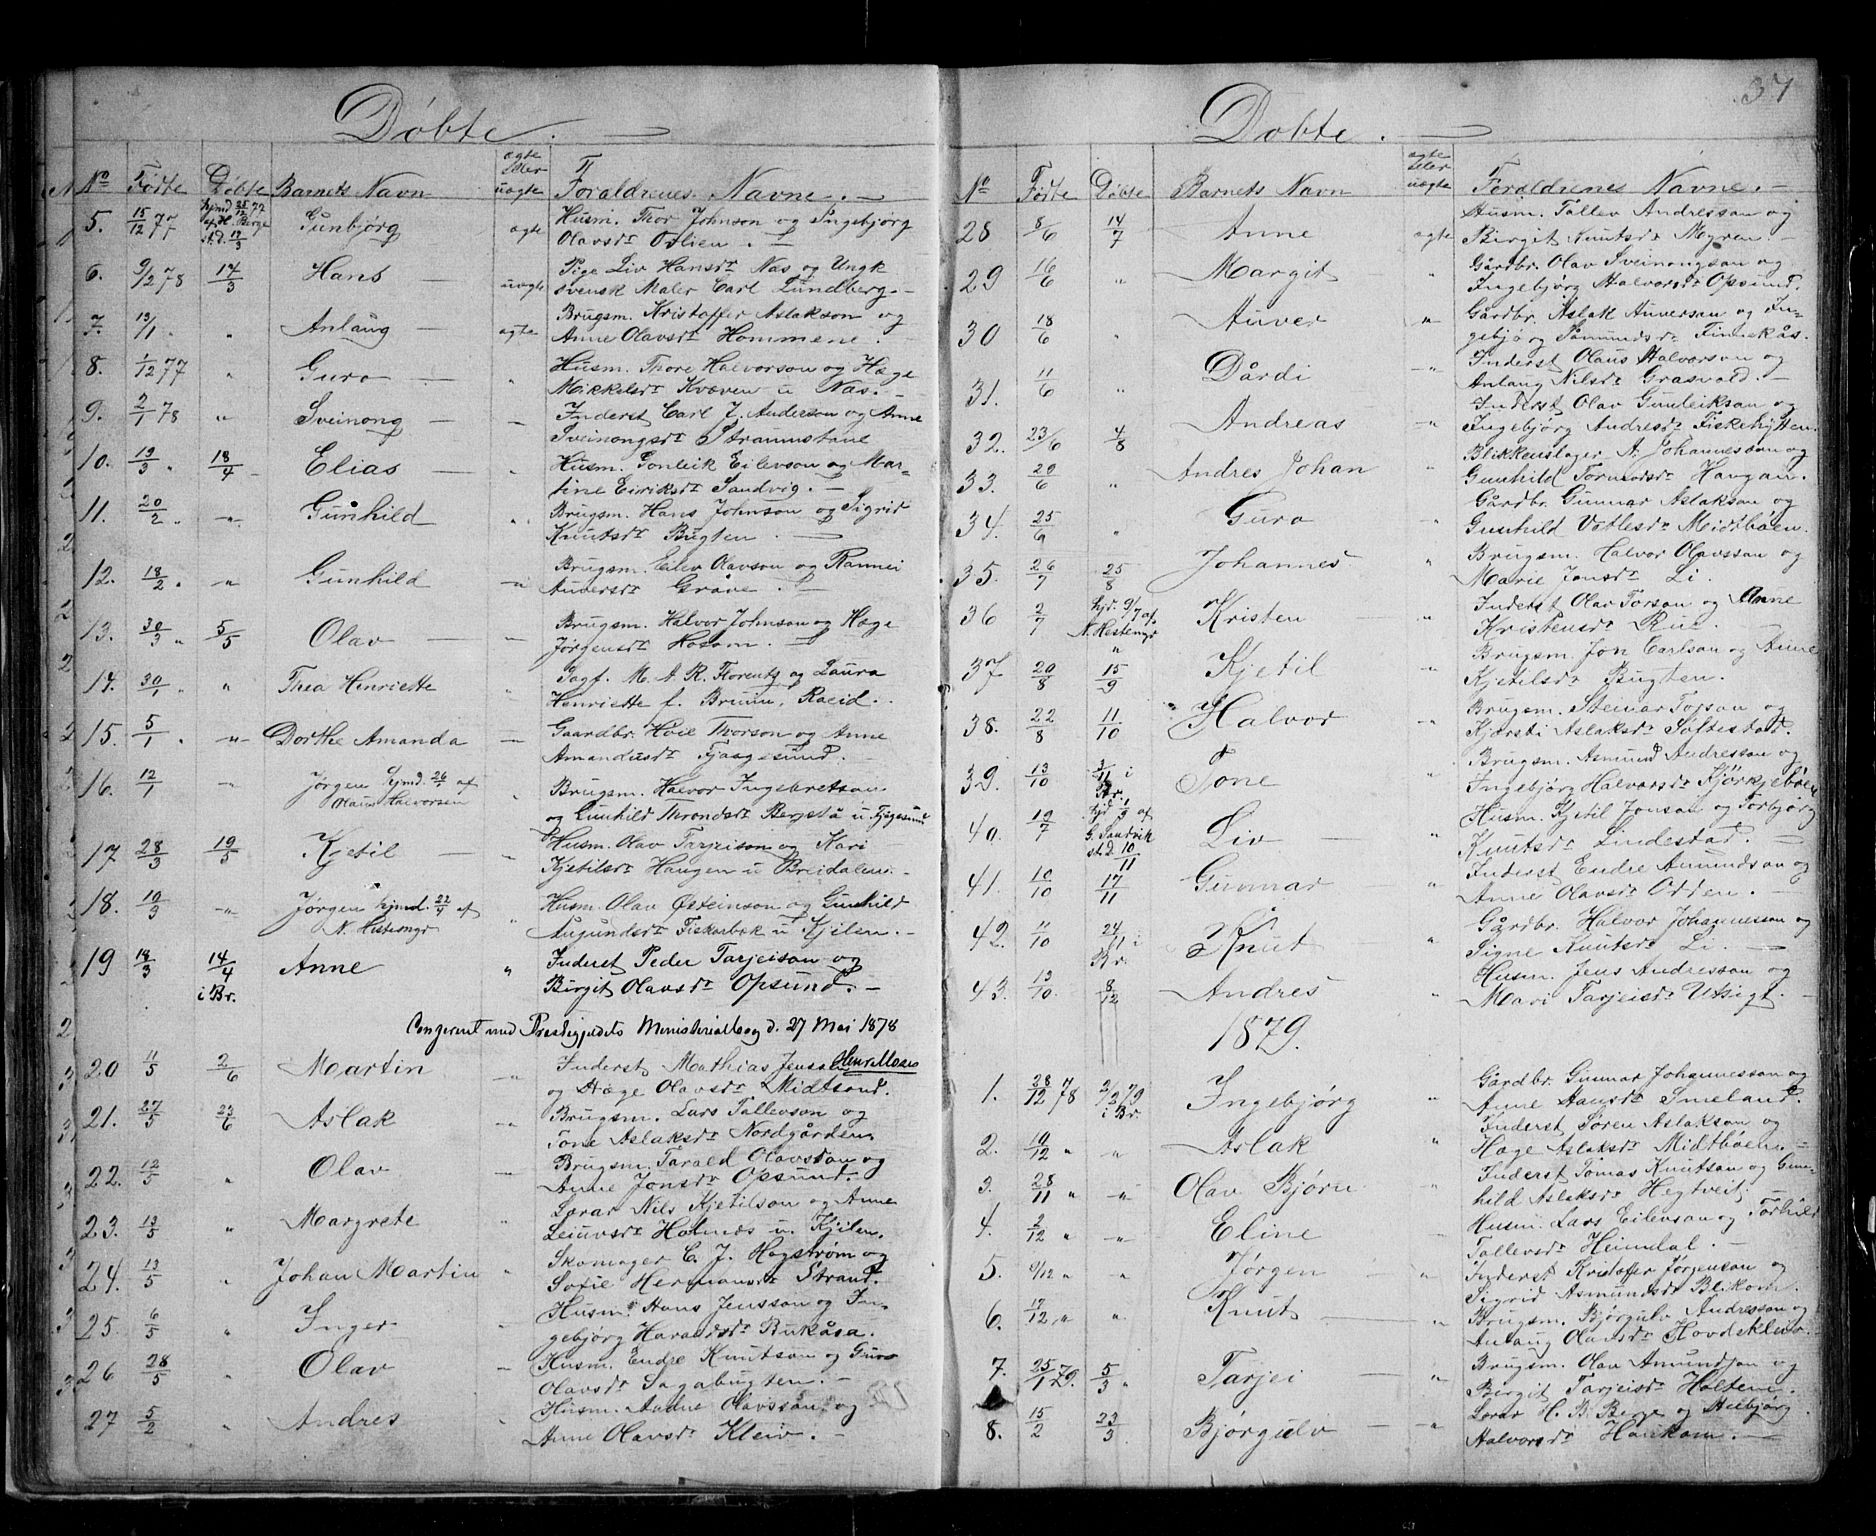 Døbte.
No Fødte Døbte Barnets Navn ægte eller uægte Forældrenes Navne.
5. 15/12 77 hjmd 25/12 77 af H. Berge st.d. 12/3 Gunbjørg ægte Husm. Thor Johnson og Ingebjørg
Olavsdr
6. 9/2 78 17/3 Hans uægte Pige Liv Hansdr Næs og Ungk
svensk Maler Carl Lundberg.
7. 13/1 " " Anlaug ægte Brugsm. Kristoffer Aslakson og
Anne Olavsdr Hommene.
8. 1/12 77 " Guro " Husm. Thore Halvorson og Hæge
Mikkelsdr Kvæven u Næs.
9. 2/1 78 " Sveinong Inderst Carl J. Anderson og Anne
Sveinongsdr Straumstane
10. 19/3 " 18/4 Elias " Husm. Gonleik Eilevson og Mar-
tine Eiriksdr Sandvig.
11. 20/2 " " Gunhild " Brugsm. Hans Johnson og Sigrid
Knutsdr Bugten.
12. 18/2 " " Gunhild " Brugsm. Eilev Olavson og Rannei
Auversdr Gråve.
13. 30/3 " 5/5 Olav " Brugsm. Halvor Johnson og Hæge
Jørgensdr
14. 30/1 " " Thea Henriette " M. A. R. Florentz og Laura
Henriette f. Bruun, Raeid.
15. 5/1 " " Dorthe Amanda Gaardbr. Hoie Thorson og Anne
Amandusdr Fjaagesund.
16. 12/1 " Jørgen hjmd. 26/1 af Olaus Halvorsen " Brugsm. Halvor Ingebretson
og Gunhild Throndsdr Bergstå u Fjågesund
17 28/3 19/5 Kjetil " Husm. Olav Tarjeison og Kari
Kjetilsdr Haugen u Breidalen.
18. 10/3 " Jørgen hjmd. 22/4 af N. Hestengr " Husm. Olav Østeinson og Gunhild
Augundsdr Fiskarbæk u Kjilen.
19 14/3 14/4 i Br. Anne " Inderst Peder Tarjeison og
Birgit Olavsdr Opsund.
Congereret med Prestegjeldets Ministerialbog d. 27 Mai 1878
20 11/5 2/6 Martin " Inderst Mathias Jensson
og Hæge Olavsdr Midtsund.
21. 27/5 23/6 Aslak " Brugsm. Lars Tallevson og
Tone Aslaksdr Nordgården.
22. 12/5 " Olav Brugsm. Tarald Olavsson og
Anne Jonsdr Opsund.
23. 13/5 " Margrete " Lærar Nils Kjetilson og Anne
Leiuvsdr Holmas u. Kjilen.
24. 13/5 " Johan Martin " Skomager C. J. Hagstrøm og
Sofie Hermansdr Strand.
25. 6/5 " Inger Husm. Hans Jensson og In-
gebjørg Haraldsdr Bukåsa.
26 28/5 Olav Husm. Endre Knutson og Guro
Olavsdr Sagabugten.
27 5/2 " Andres Husm. Aadne Olavsson og
Anne Olavsdr Kleiv.
37
Døbte.
No Fødte Døbte Barnets Navn ægte eller uægte Forældrenes Navne.
28 8/6 14/7 Anne ægte Husm. Tallev Andresson og
Birgit Knutsdr Myren.
29 16/6 " Margit " Gårdbr. Olav Sveinongson og
Ingebjørg Halvorsdr Opsund.
30 18/6 " Auver " Gårdbr. Aslak Auverson og In-
gebjørg Sæmundsdr Finnekås.
31. 11/6 Dårdi " Inderst Olaus Halvorson og
Anlaug Nilsdr Grasvold.
32. 23/6 4/8 Andreas " Inderst Olav Gunleikson og
Ingebjørg Andresdr Fiskehytten.
33. 29/6 " Andres Johan " Blikkenslager A. Johannesson og
Gunhild Tormodsdr Haugan.
34. 25/6 " Guro " Gårdbr. Gunnar Aslakson og
Gunhild Vetlesdr Midtbøen.
35. 26/7 25/8 Johannes " Brugsm. Halvor Olavsson og
Marie Jonsdr Li.
36 2/7 hjd. 9/7 af N. Hestengr " Kristen Inderst Olav Torson og Anne
Kristensdr Rui.
37 20/8 15/9 Kjetil " Brugsm. Jon Carlson og Anne
Kjetilsdr Bugten.
38. 22/8 11/10 Halvor " Brugsm. Steinar Torson og
Kjersti Aslaksdr Søftestad.
39. 13/10 3/11 i Br. Tone " Brugsm. Asmund Andresson og
Ingebjørg Halvorsdr Kjørkjebøen
40. 19/7 hjd 1/9 af G. Sandvik st.d. 10/11 Liv " Husm. Kjetil Jonson og Torbjørg
Knutsdr Lindestad.
41. 10/10 17/11 Gunnar " Inderst Endre Amundson og
Anne Olavsdr Odden.
42. 11/10 24/11 i Br. Knut " Gårdbr. Halvor Johannesson og
Signe Knutsdr Li.
43. 13/10. 8/12 Andres " Husm. Jens Andresson og
Mari Tarjeisdr Utsigt.
1879.
1. 28/12 78 2/2 79 i Br. Ingebjørg " Gårdbr. Gunnar Johannesson og
Anne Hansdr Smeland.
2. 19/12 " " Aslak " Inderst Søren Aslakson og
Hæge Aslaksdr Midtbøen.
3. 28/11 " " Olav Bjørn " Inderst Tomas Knutson og Gun-
hild Aslaksdr Hegtveit.
4. 2/12 " " Eline Husm. Lars Eilevson og Torhild
Tallevsdr Heimdal.
5. 6/12 " " Jørgen " Inderst Kristoffer Jørgenson og
Sigrid Asmundsdr Blikom.
6. 17/12 " " Knut " Brugsm. Bjørgulv Andresson og
Anlaug Olavsdr Hovdekleiv.
7. 25/1 79. 5/3 " Tarjei " Brugsm. Olav Amundson og
Birgit Tarjeisdr Holtene.
8. 15/2 23/3 Bjørgulv " Lærar H. B. Berge og Aasbjørg
Halvorsdr Haukom.